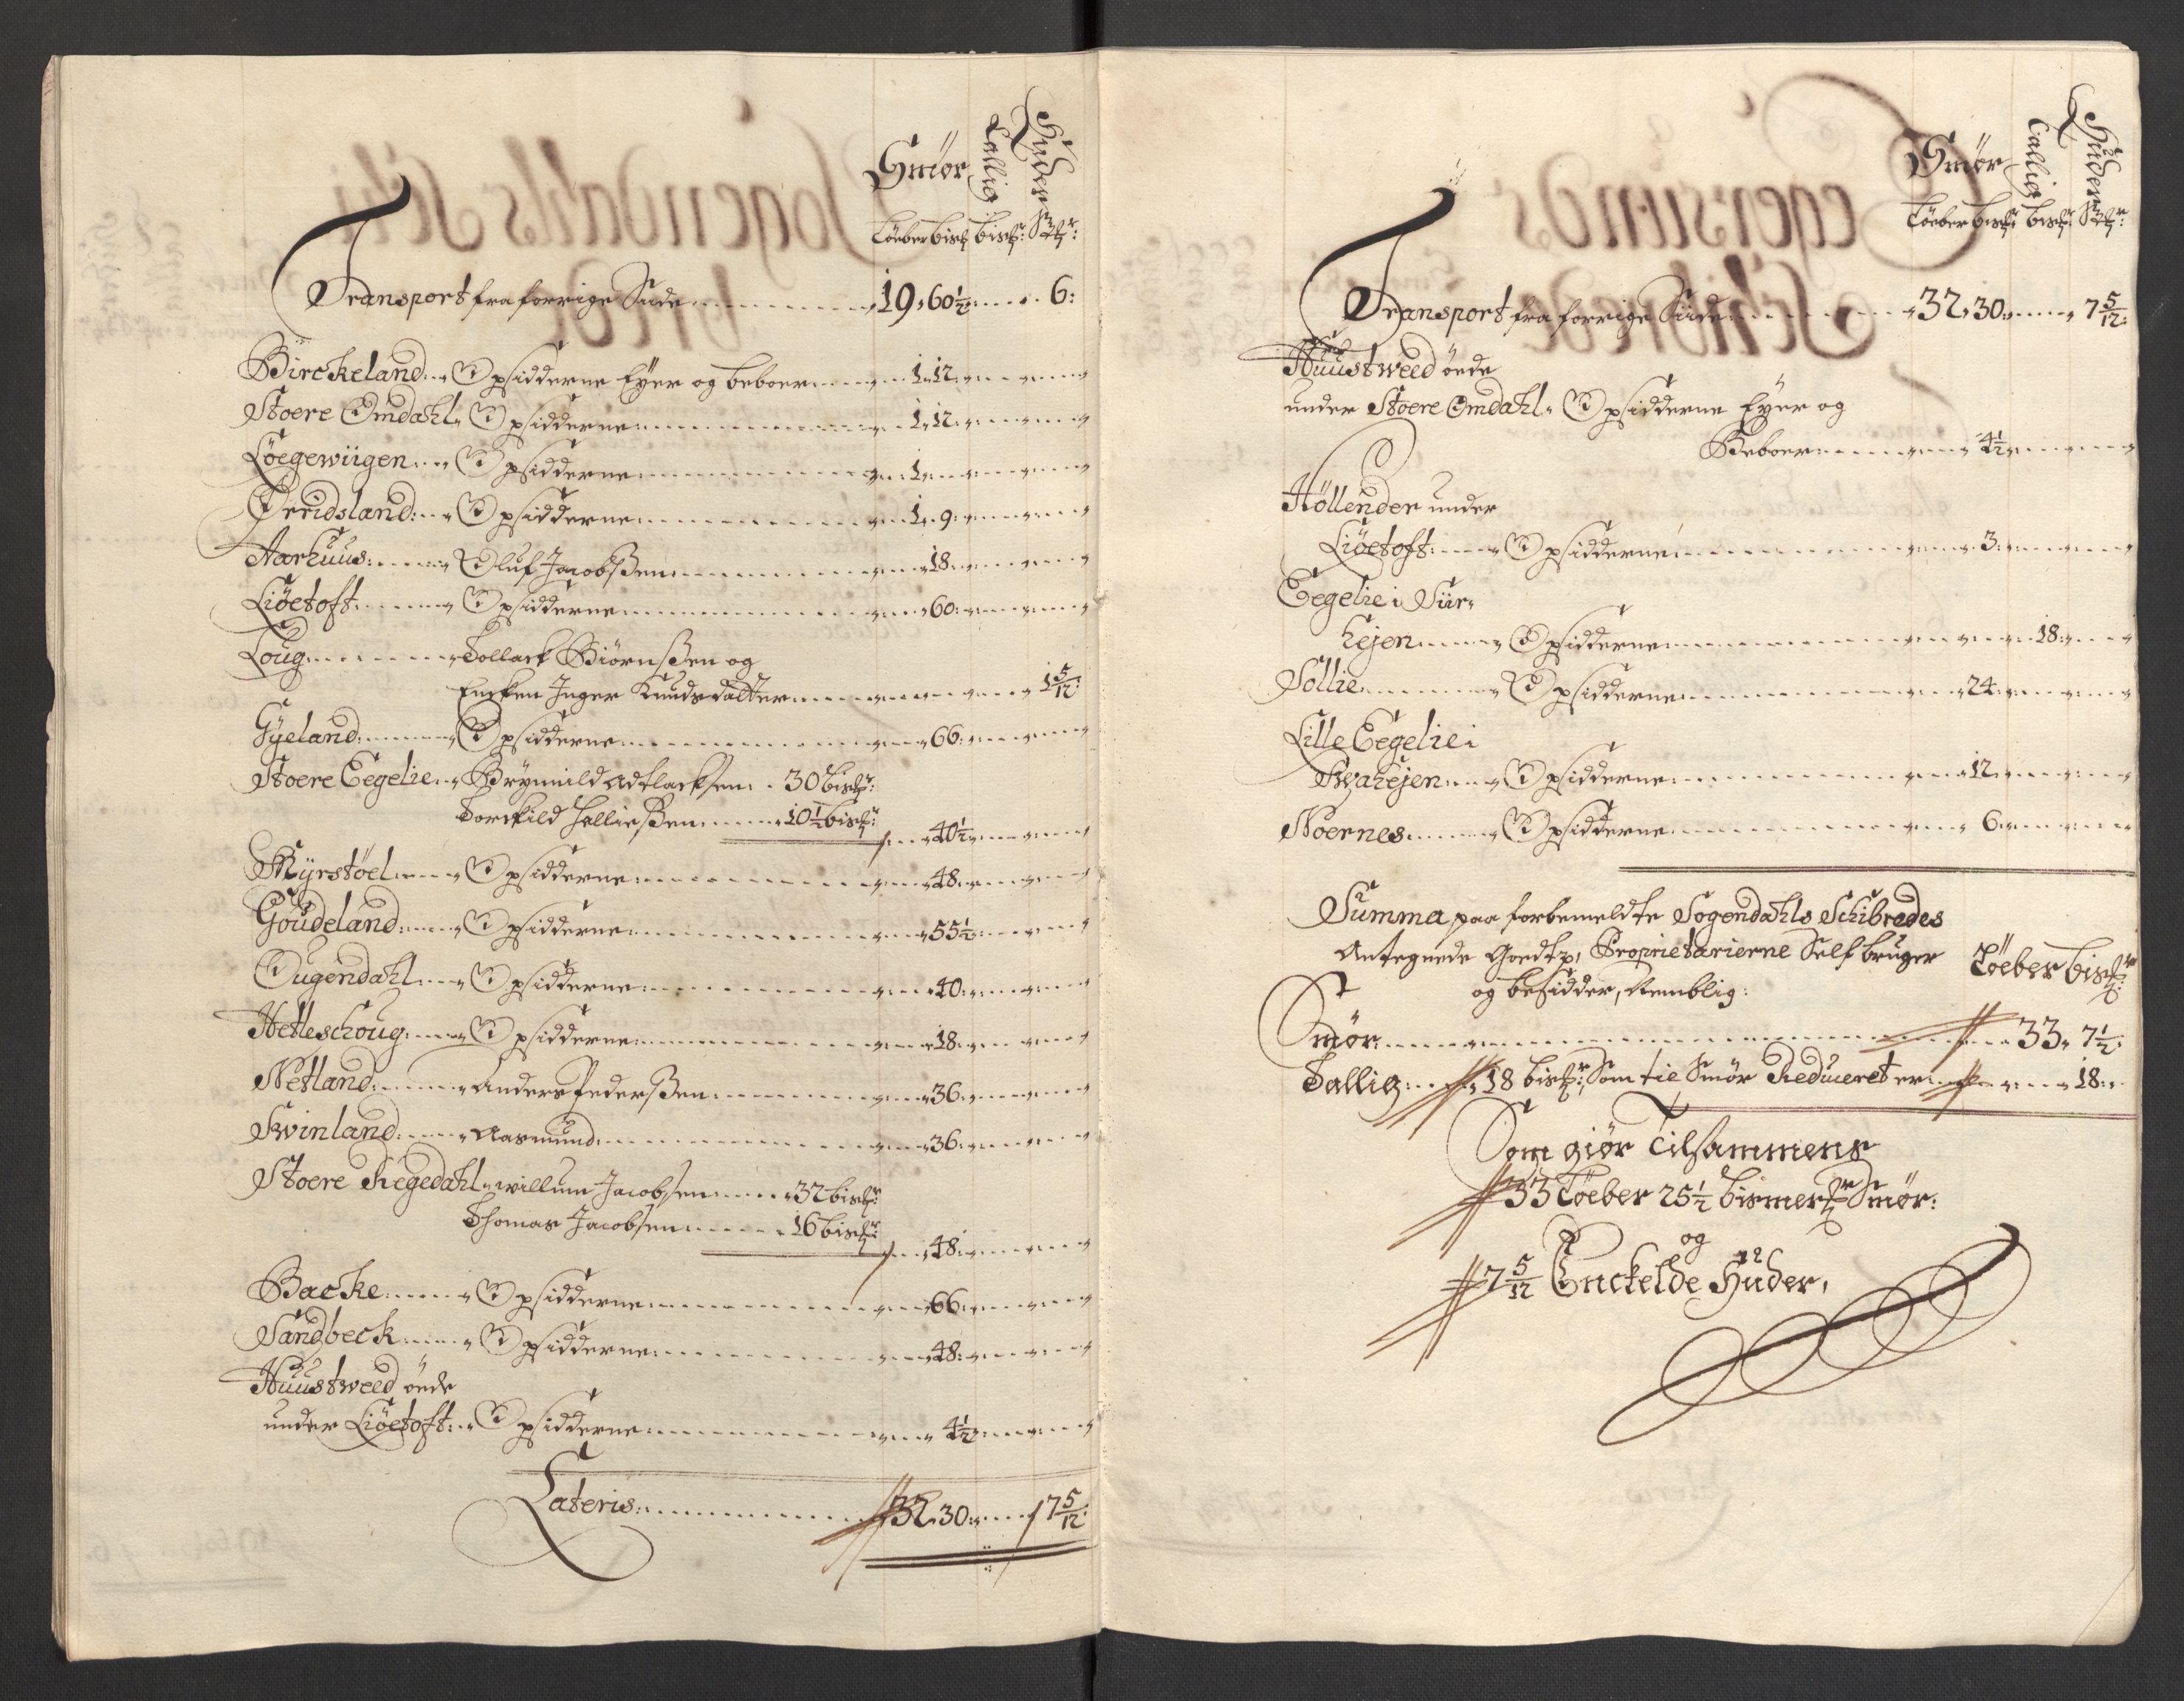 Smör Tallig Huder
Löeber bisℳr: bisℳr: Stkr:
Transport fra forrige Side 19 „ 60½ 6:
Birckeland Opsidderne Eyer og beboer 1 „ 12
Stoere Omdahl Opsidderne 1 „ 12
Löegewiigen Opsidderne 1
Örridsland Opsidderne 1 „ 9
Aarhuus Oluf Jacobßen 18
Liöetoft Opsidderne 60
Loug Tollack Biörnßen og
Encken Inger Knudsdatter 1 5/12
Gÿeland Opsidderne 66
Stoere Eegelie Brÿnnild Adtlacksen 30 bisℳr:
Torckild Salliesßen 10½ bisℳr: 40½
Mÿrstöel Opsidderne 48
Goudeland Opsidderne 55½
Ougendahl Opsidderne 40
Hetleschoug Opsidderne 18
Netland Anders Pederßen 36
Swinland Aasmund 36
Stoere Regedahl willum Jacobsen 32 bisℳr:
Thomas Jacobsen 16 bisℳr: 48
Backe Opsidderne 66
Sandbeck Opsidderne 48
Huustweed öede
under Liöetoft Opsidderne 4½
Lateris 32 „ 30 7 5/12
Smör Tallig Huder
Löeber bisℳr: bisℳr: Stkr:
Transport fra forrige Side 32 „ 30 7 5/12
Huustweed öede
under Stoere Omdahl Opsidderne Eyer og
Beboer 4½
Höllender under
Liöetoft Opsidderne 3
Eegelie i Sür„
hejen Opsidderne 18
Sollie Opsidderne 24
Lille Eegelie i
Swahejen Opsidderne 12
Noernes Opsidderne 6
Summa paa forbemeldte Sogendahls Schibredes
Antegnede Goedtz, Proprietarierne Self bruger
og besidder, Nemblig: Löeber bisℳr:
Smör 33 „ 7½
Tallig 18 bisℳr: Som til Smör Reduceret er 18
Som giör Tilsammens
33 Löeber 25½ bismerℳr Smör:
og
7 5/12 Enckelde Huder,